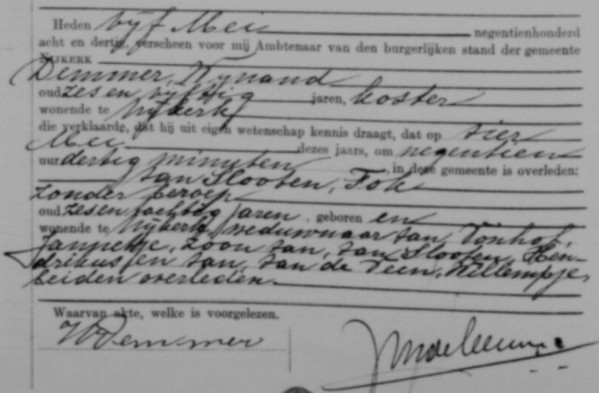 Heden vijf Mei negentienhonderd
acht en dertig, verscheen voor mij Ambtenaar van den burgerlijken stand der gemeente
NIJKERK
Demmer, Wijnand
oud zes en vijftig jaren, koster
wonende te Nijkerk
die verklaarde, dat hij uit eigen wetenschap kennis draagt, dat op vier
Mei dezes jaars, om negentien
uur dertig minuten, in deze gemeente is overleden:
van Slooten, Fok
zonder beroep
oud zes en tachtig jaren, geboren en
wonende te Nijkerk, weduwnaar van Vonhof,
Jannetje, zoon van, van Slooten, Hen-
drikus en van, van de Veen, Willempje,
beiden overleden.
Waarvan akte, welke is voorgelezen.
WDemmer